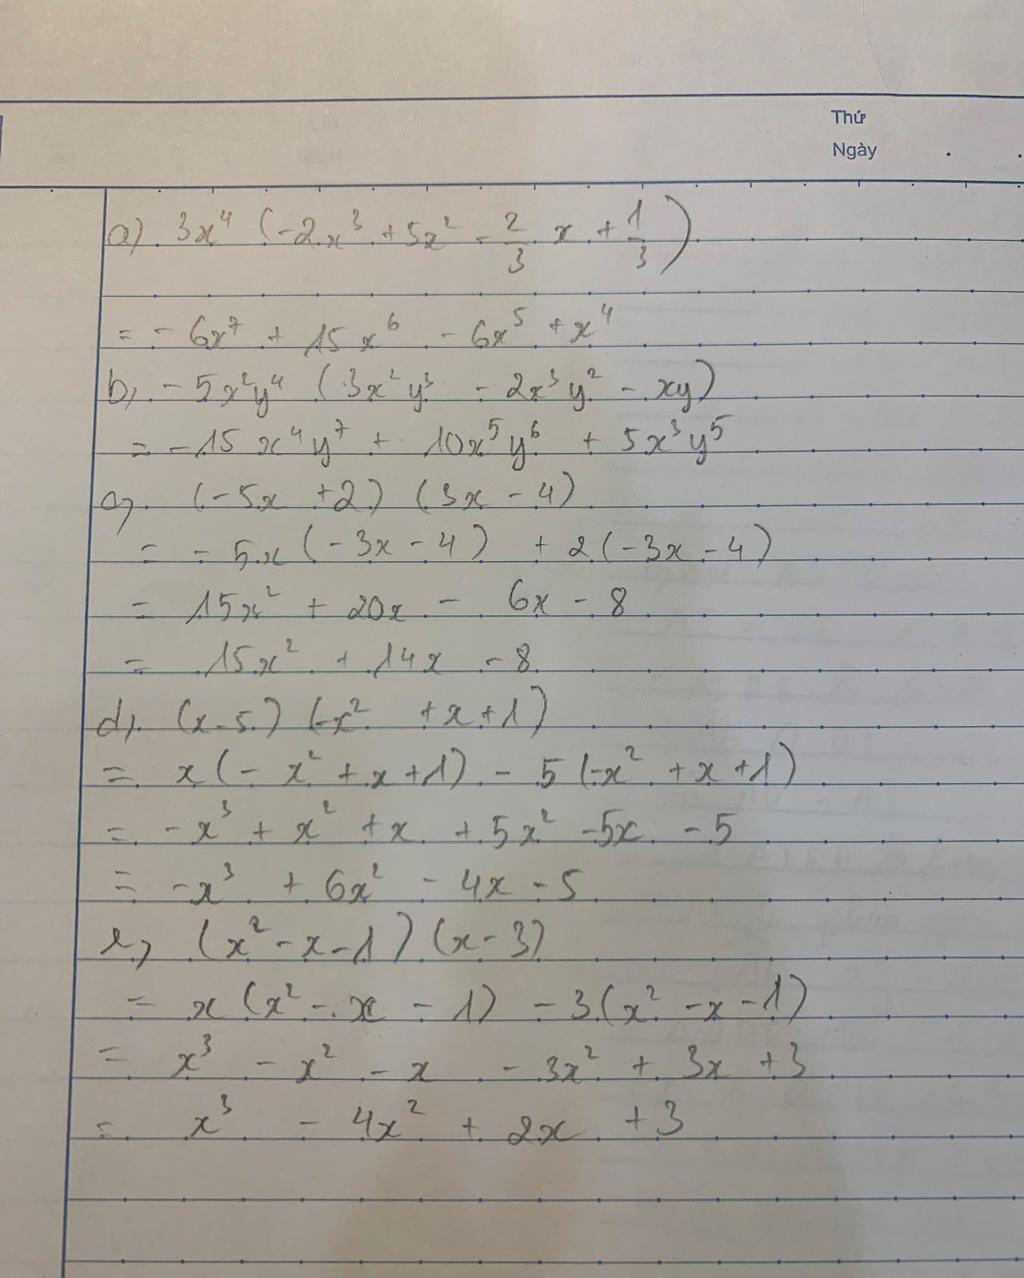 Thứ
Ngày
a) 3x⁴ (-2x³ + 5x² - 2/3 x + 1/3)
= - 6x⁷ + 15x⁶ - 6x⁵ + x⁴
b, - 5x²y⁴ (3x²y³ - 2x³y² - xy)
= -15 x⁴y⁷ + 10x⁵y⁶ + 5x³y⁵
c, (-5x + 2) (3x - 4)
= - 5x (-3x - 4) + 2 (-3x - 4)
= 15x² + 20x - 6x - 8
= 15x² + 14x - 8
d, (x - 5) (-x² + x + 1)
= x (- x² + x + 1) - 5 (-x² + x + 1)
= -x³ + x² + x + 5x² - 5x - 5
= -x³ + 6x² - 4x - 5
e, (x² - x - 1) (x - 3)
= x (x² - x - 1) - 3 (x² - x - 1)
= x³ - x² - x - 3x² + 3x + 3
= x³ - 4x² + 2x + 3